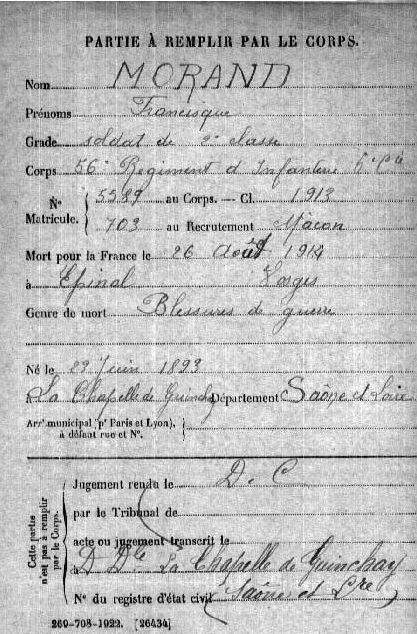 PARTIE À REMPLIR PAR LE CORPS.
Nom MORAND
Prénoms Francisque
Grade soldat de 2e classe
Corps 56e Regiment d Infanterie 5e Cie
N° Matricule. { 5589 au Corps. — Cl. 1913
703 au Recrutement Macon
Mort pour la France le 26 Août 1914
à Epinal Vosges
Genre de mort Blessures de guerre
Né le 23 Juin 1893
à La Chapelle de Guinchay Département Saône et Loire
Arrt municipal (pr Paris et Lyon),
à défaut rue et N°.
Cette partie n'est pas à remplir par le Corps.
Jugement rendu le D. C
par le Tribunal de
acte ou jugement transcrit le
à D Dle La Chapelle de Guinchay
N° du registre d'état civil (Saône et Lre)
269-708-1922. [26434]